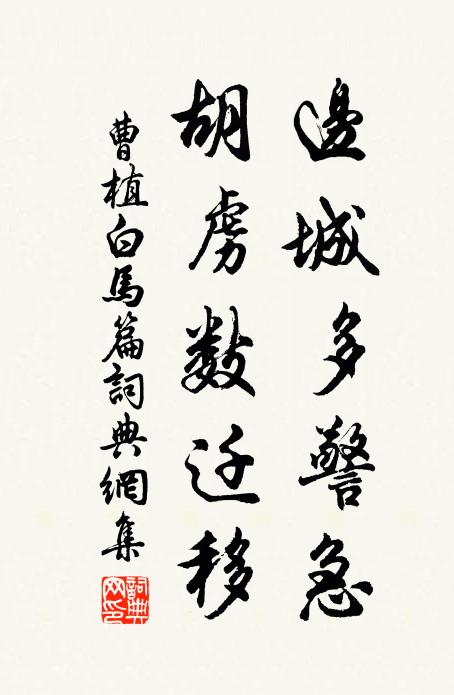 邊城多警急
胡虜數迁移
曹植白馬篇詞典網集
詞典
网印